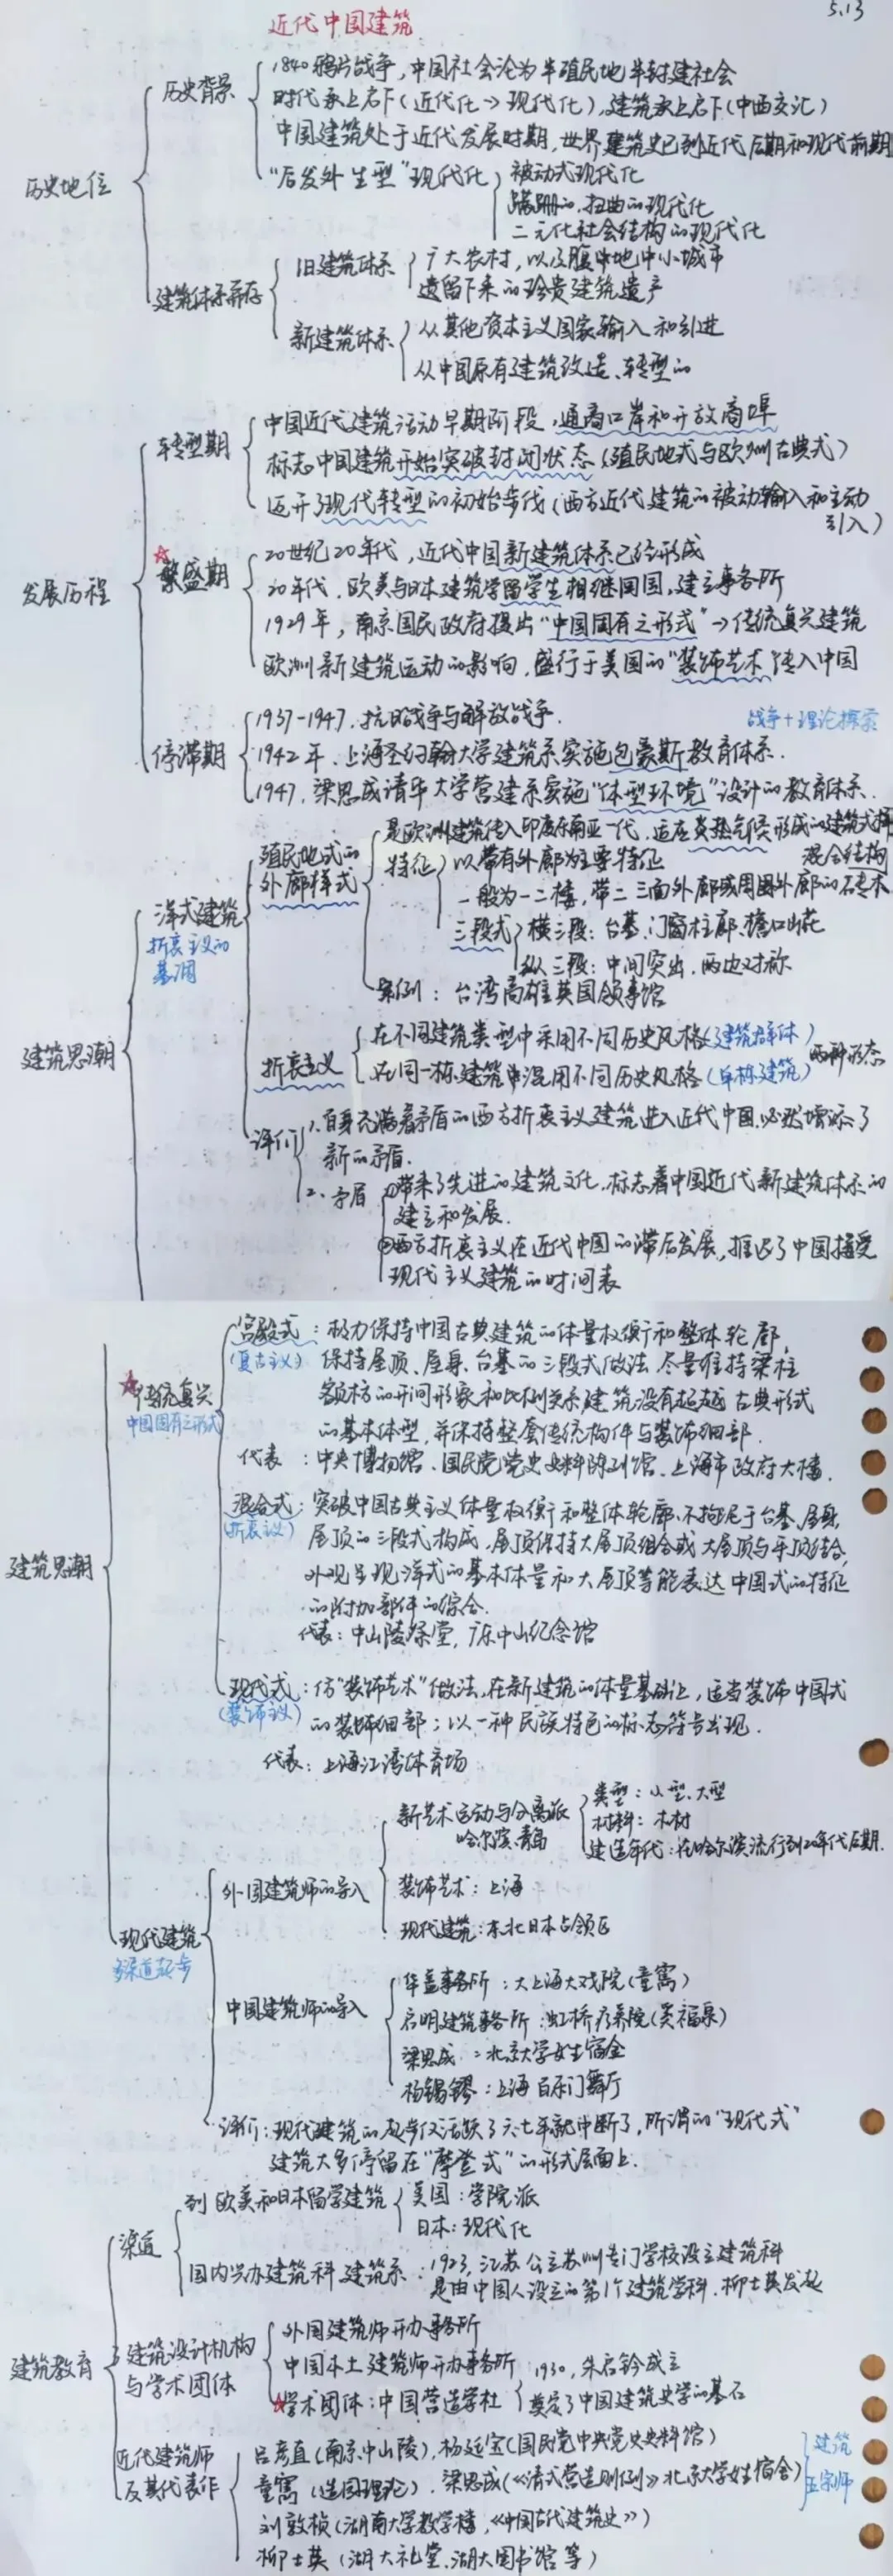 5.13
近代中国建筑
历史地位
历史背景
1840鸦片战争,中国社会沦为半殖民地半封建社会
时代承上启下(近代化→现代化),建筑承上启下(中西交汇)
中国建筑处于近代发展时期,世界建筑史已到近代后期和现代前期
“后发外生型”现代化
被动式现代化
蹒跚的、扭曲的现代化
二元化社会结构的现代化
建筑体系并存
旧建筑体系
广大农村,以及腹中地中小城市
遗留下来的珍贵建筑遗产
新建筑体系
从其他资本主义国家输入和引进
从中国原有建筑改造、转型的
发展历程
转型期
中国近代建筑活动早期阶段,通商口岸和开放商埠
标志中国建筑开始突破封闭状态(殖民地式与欧洲古典式)
迈开了现代转型的初始步伐(西方近代建筑的被动输入和主动
引入)
☆繁盛期
20世纪20年代,近代中国新建筑体系已经形成
20年代,欧美与日本建筑学留学生相继回国,建立事务所
1929年,南京国民政府提出“中国固有之形式”→传统复兴建筑
欧洲新建筑运动的影响,盛行于美国的“装饰艺术”传入中国
停滞期
1937-1947,抗日战争与解放战争.
战争+理论探索
1942年、上海圣约翰大学建筑系实施包豪斯教育体系.
1947,梁思成清华大学营建系实施“体型环境”设计的教育体系.
建筑思潮
洋式建筑
折衷主义的
基调
殖民地式的
外廊样式
是欧洲建筑传入印度东南亚一代,适应炎热气候形成的建筑式样
特征
以带有外廊为主要特征
混合结构
一般为一二楼,带二三面外廊或周围外廊的砖木
三段式
横三段:台基、门窗柱廊、檐口山花
纵三段:中间突出,两边对称
案例:台湾高雄英国领事馆
折衷主义
在不同建筑类型中采用不同历史风格(建筑群体)
在同一栋建筑中混用不同历史风格(单栋建筑)
两种形态
评价
1、自身充满着矛盾的西方折衷主义建筑进入近代中国,必然增添了
新的矛盾.
2、矛盾
①带来了先进的建筑文化,标志着中国近代新建筑体系的
建立和发展.
②西方折衷主义在近代中国的滞后发展,推迟了中国接受
现代主义建筑的时间表
建筑思潮
☆传统复兴
中国固有之形式
宫殿式:极力保持中国古典建筑的体量权衡和整体轮廓,
(复古主义)
保持屋顶、屋身、台基的三段式做法,尽量维持梁柱
额枋的开间形象和比例关系建筑没有超越古典形式
的基本体型,并保持整套传统构件与装饰细部.
代表:中央博物馆、国民党党史史料陈列馆、上海市政府大楼.
混合式:突破中国古典主义体量权衡和整体轮廓,不拘泥于台基、屋身,
(折衷主义)
屋顶的三段式构成,屋顶保持大屋顶组合或大屋顶与平顶结合,
外观呈现洋式的基本体量和大屋顶等能表达中国式的特征
的附加部件的综合.
代表:中山陵祭堂,广东中山纪念馆
现代式:仿“装饰艺术”做法,在新建筑的体量基础上,适当装饰中国式
(装饰主义)
的装饰细部;以一种民族特色的标志符号出现.
代表:上海江湾体育场
现代建筑
多渠道起步
外国建筑师的导入
新艺术运动与分离派
哈尔滨、青岛
类型:小型、大型
材料:木材
建造年代:在哈尔滨流行到20年代后期.
装饰艺术:上海
现代建筑:东北日本占领区
中国建筑师的导入
华盖事务所:大上海大戏院(童寯)
启明建筑事务所:虹桥疗养院(奚福泉)
梁思成:北京大学女生宿舍
杨锡镠:上海百乐门舞厅
评价:现代建筑的起步仅活跃了六七年就中断了,所谓的“现代式”
建筑大多停留在“摩登式”的形式层面上.
建筑教育
渠道
到欧美和日本留学建筑
美国:学院派
日本:现代化
国内兴办建筑科、建筑系:1923,江苏公立苏州专门学校设立建筑科
是由中国人设立的第1个建筑学科,柳士英发起
建筑设计机构
与学术团体
外国建筑师开办事务所
中国本土建筑师开办事务所
☆学术团体:中国营造学社
1930,朱启钤成立
奠定了中国建筑史学的基石
近代建筑师
及其代表作
吕彦直(南京中山陵),杨廷宝(国民党中央党史史料馆)
童寯(造园理论),梁思成(《清式营造则例》北京大学女生宿舍)
刘敦桢(湖南大学教学楼,《中国古代建筑史》)
柳士英(湖大礼堂、湖大图书馆等)
建筑
五宗师